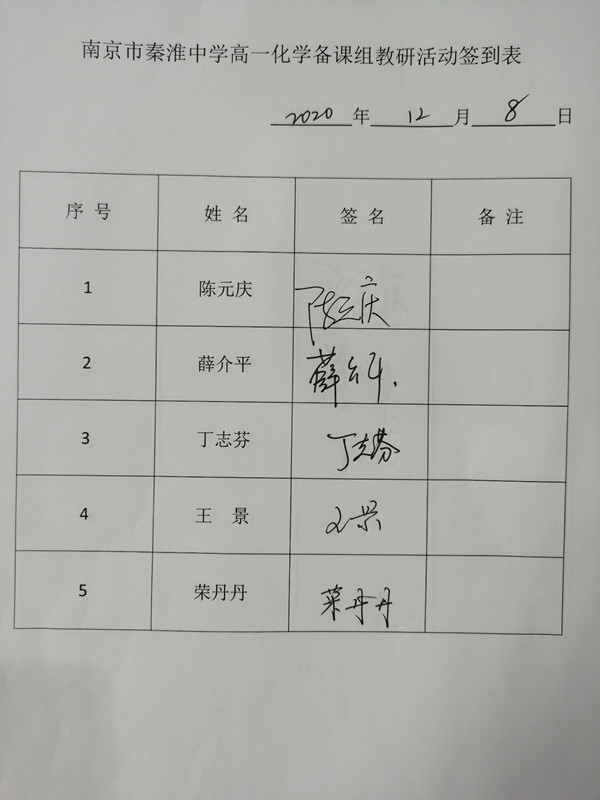 南京市秦淮中学高一化学备课组教研活动签到表
2020年 12 月 8 日
序 号 姓 名 签 名 备 注
1 陈元庆 陈元庆
2 薛介平 薛介平
3 丁志芬 丁志芬
4 王 景 王景
5 荣丹丹 荣丹丹